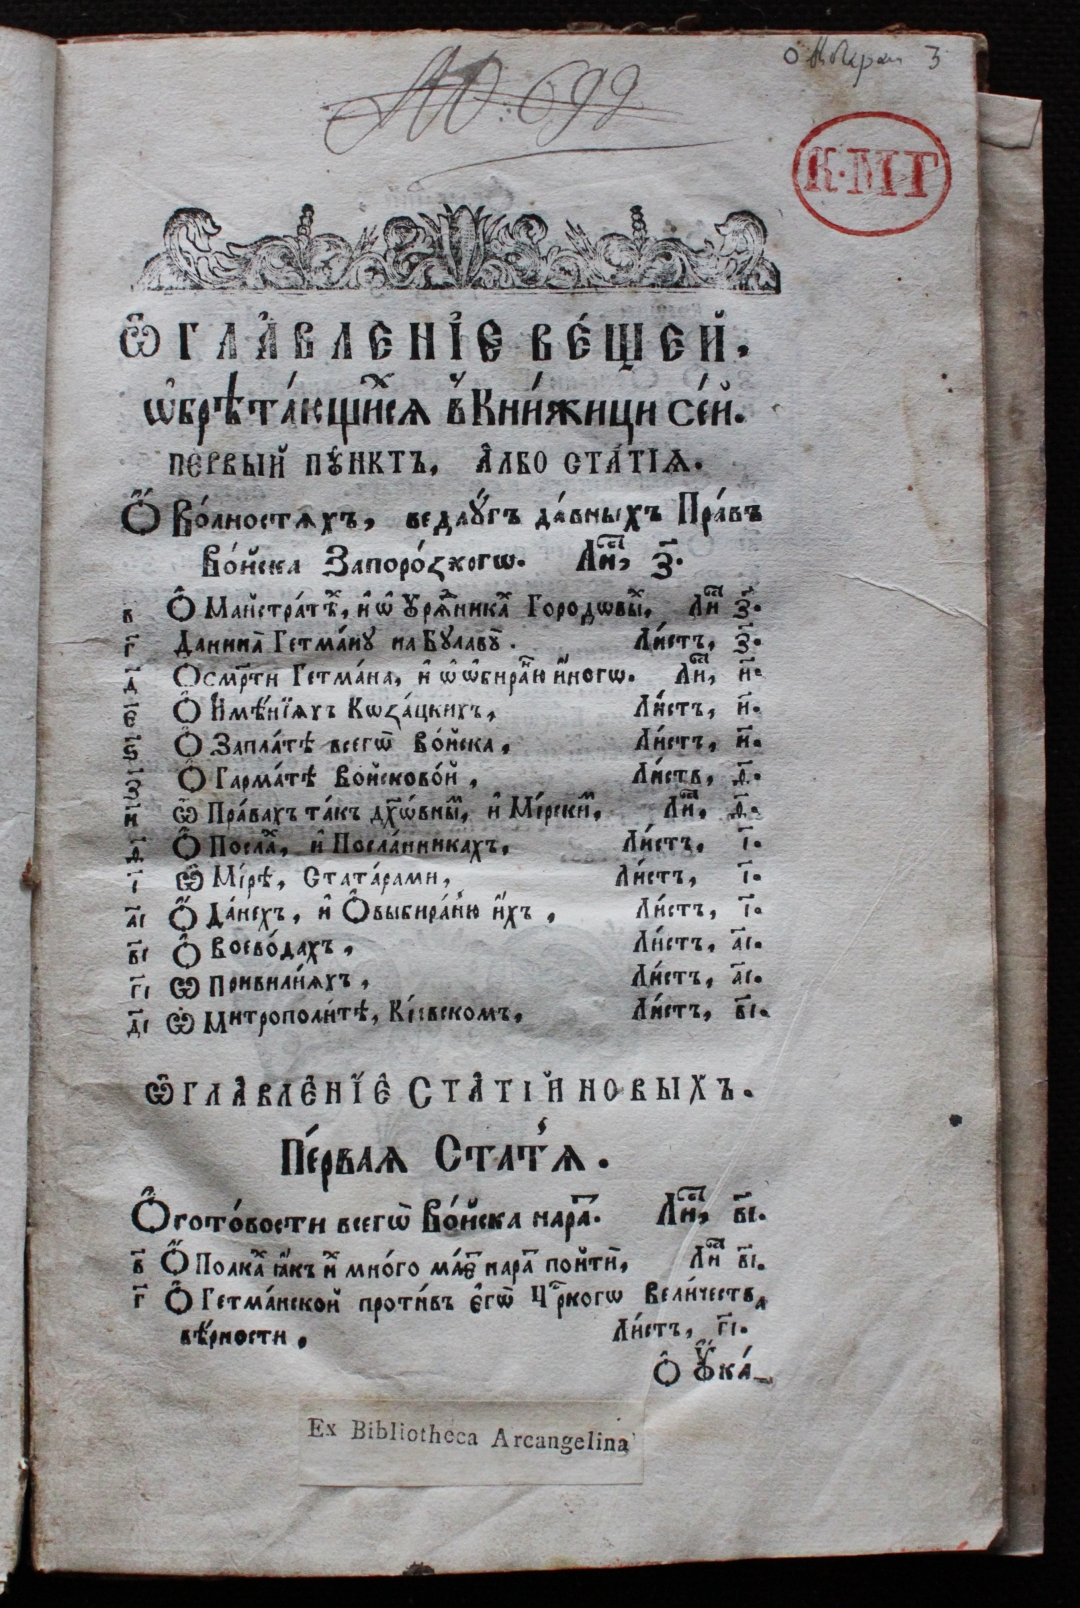 № 699
3
К·М·Г
Ѡ҆ГЛА́ВЛЕНІ́Е ВЕ́ЩЕЙ.
ѡ҆брѣта́ющи́хся в̾ Кни́жици се́й.
ПЕРВЫЙ ПꙊ́НКТЪ, А҆ЛБО СТА́ТІѦ.
Ѻ҆ Во́лностяхъ, ведлꙋ́гъ да́вныхъ Пра́въ
Во́йска Запоро́зкогѡ. Ли́с, з҃.
в О҆ Майстра́тѣх, и҆ ѡ҆ Ꙋря́дниках Городѡвы́х, Ли́с з҃.
г҃ Данина̀ Гетма́нꙋ на Бꙋлавꙋ̀. Ли́стъ, з҃.
д҃ О смр҃ти Гетма́на, и҆ ѡ҆ ѡ҆бира́нїю и҆́ногѡ. Ли́с, и҃.
є҃ О҆ И҆мѣ́нїяхъ Кѡза́цкихъ, Ли́стъ, и҃.
ѕ҃ О҆ Запла́тѣ всегѡ̀ Во́йска, Ли́стъ, и҃.
з҃ О҆ Гарма́тѣ Войсково́й, Ли́стъ, ѳ҃.
и҃ Ѡ҆ Пра́вахъ та́къ дх҃о́вных, и҆ Мі́рских, Ли́с, ѳ҃.
ѳ҃ О҆ Послах, и҆ Посла́нникахъ, Ли́стъ, і҃.
і҃ Ѡ҆ Мі́рѣ, С тата́рами, Ли́стъ, і҃.
а҃і О҆ Да́нехъ, и҆ О҆ выбира́нїю и҆́хъ, Ли́стъ, і҃.
в҃і О҆ Воево́дахъ, Ли́стъ, а҃і.
г҃і Ѡ҆ Привилїяхъ, Ли́стъ, а҃і.
д҃і Ѡ҆ Митрополи́тѣ, Кі́евскомъ, Ли́стъ, в҃і.
Ѡ҆ГЛА́ВЛЕ́НІЕ СТА́ТІЙ НОВЫХЪ.
Пе́рвая Стат́їя.
О҆ гото́вости всегѡ̀ Во́йска на рад. Ли́с, в҃і.
в҃ О҆ Полках ꙗ҆́къ их мно́го мает на рад пойти̑, Ли́с в҃і.
г҃ О҆ Гетма́нской проти́въ є҆гѡ̀ Цр҃когѡ Вели́чества
вѣ́рности, Ли́стъ, г҃і.
О҆ Ꙋ҆ка́-
Ex Bibliotheca Arcangelina